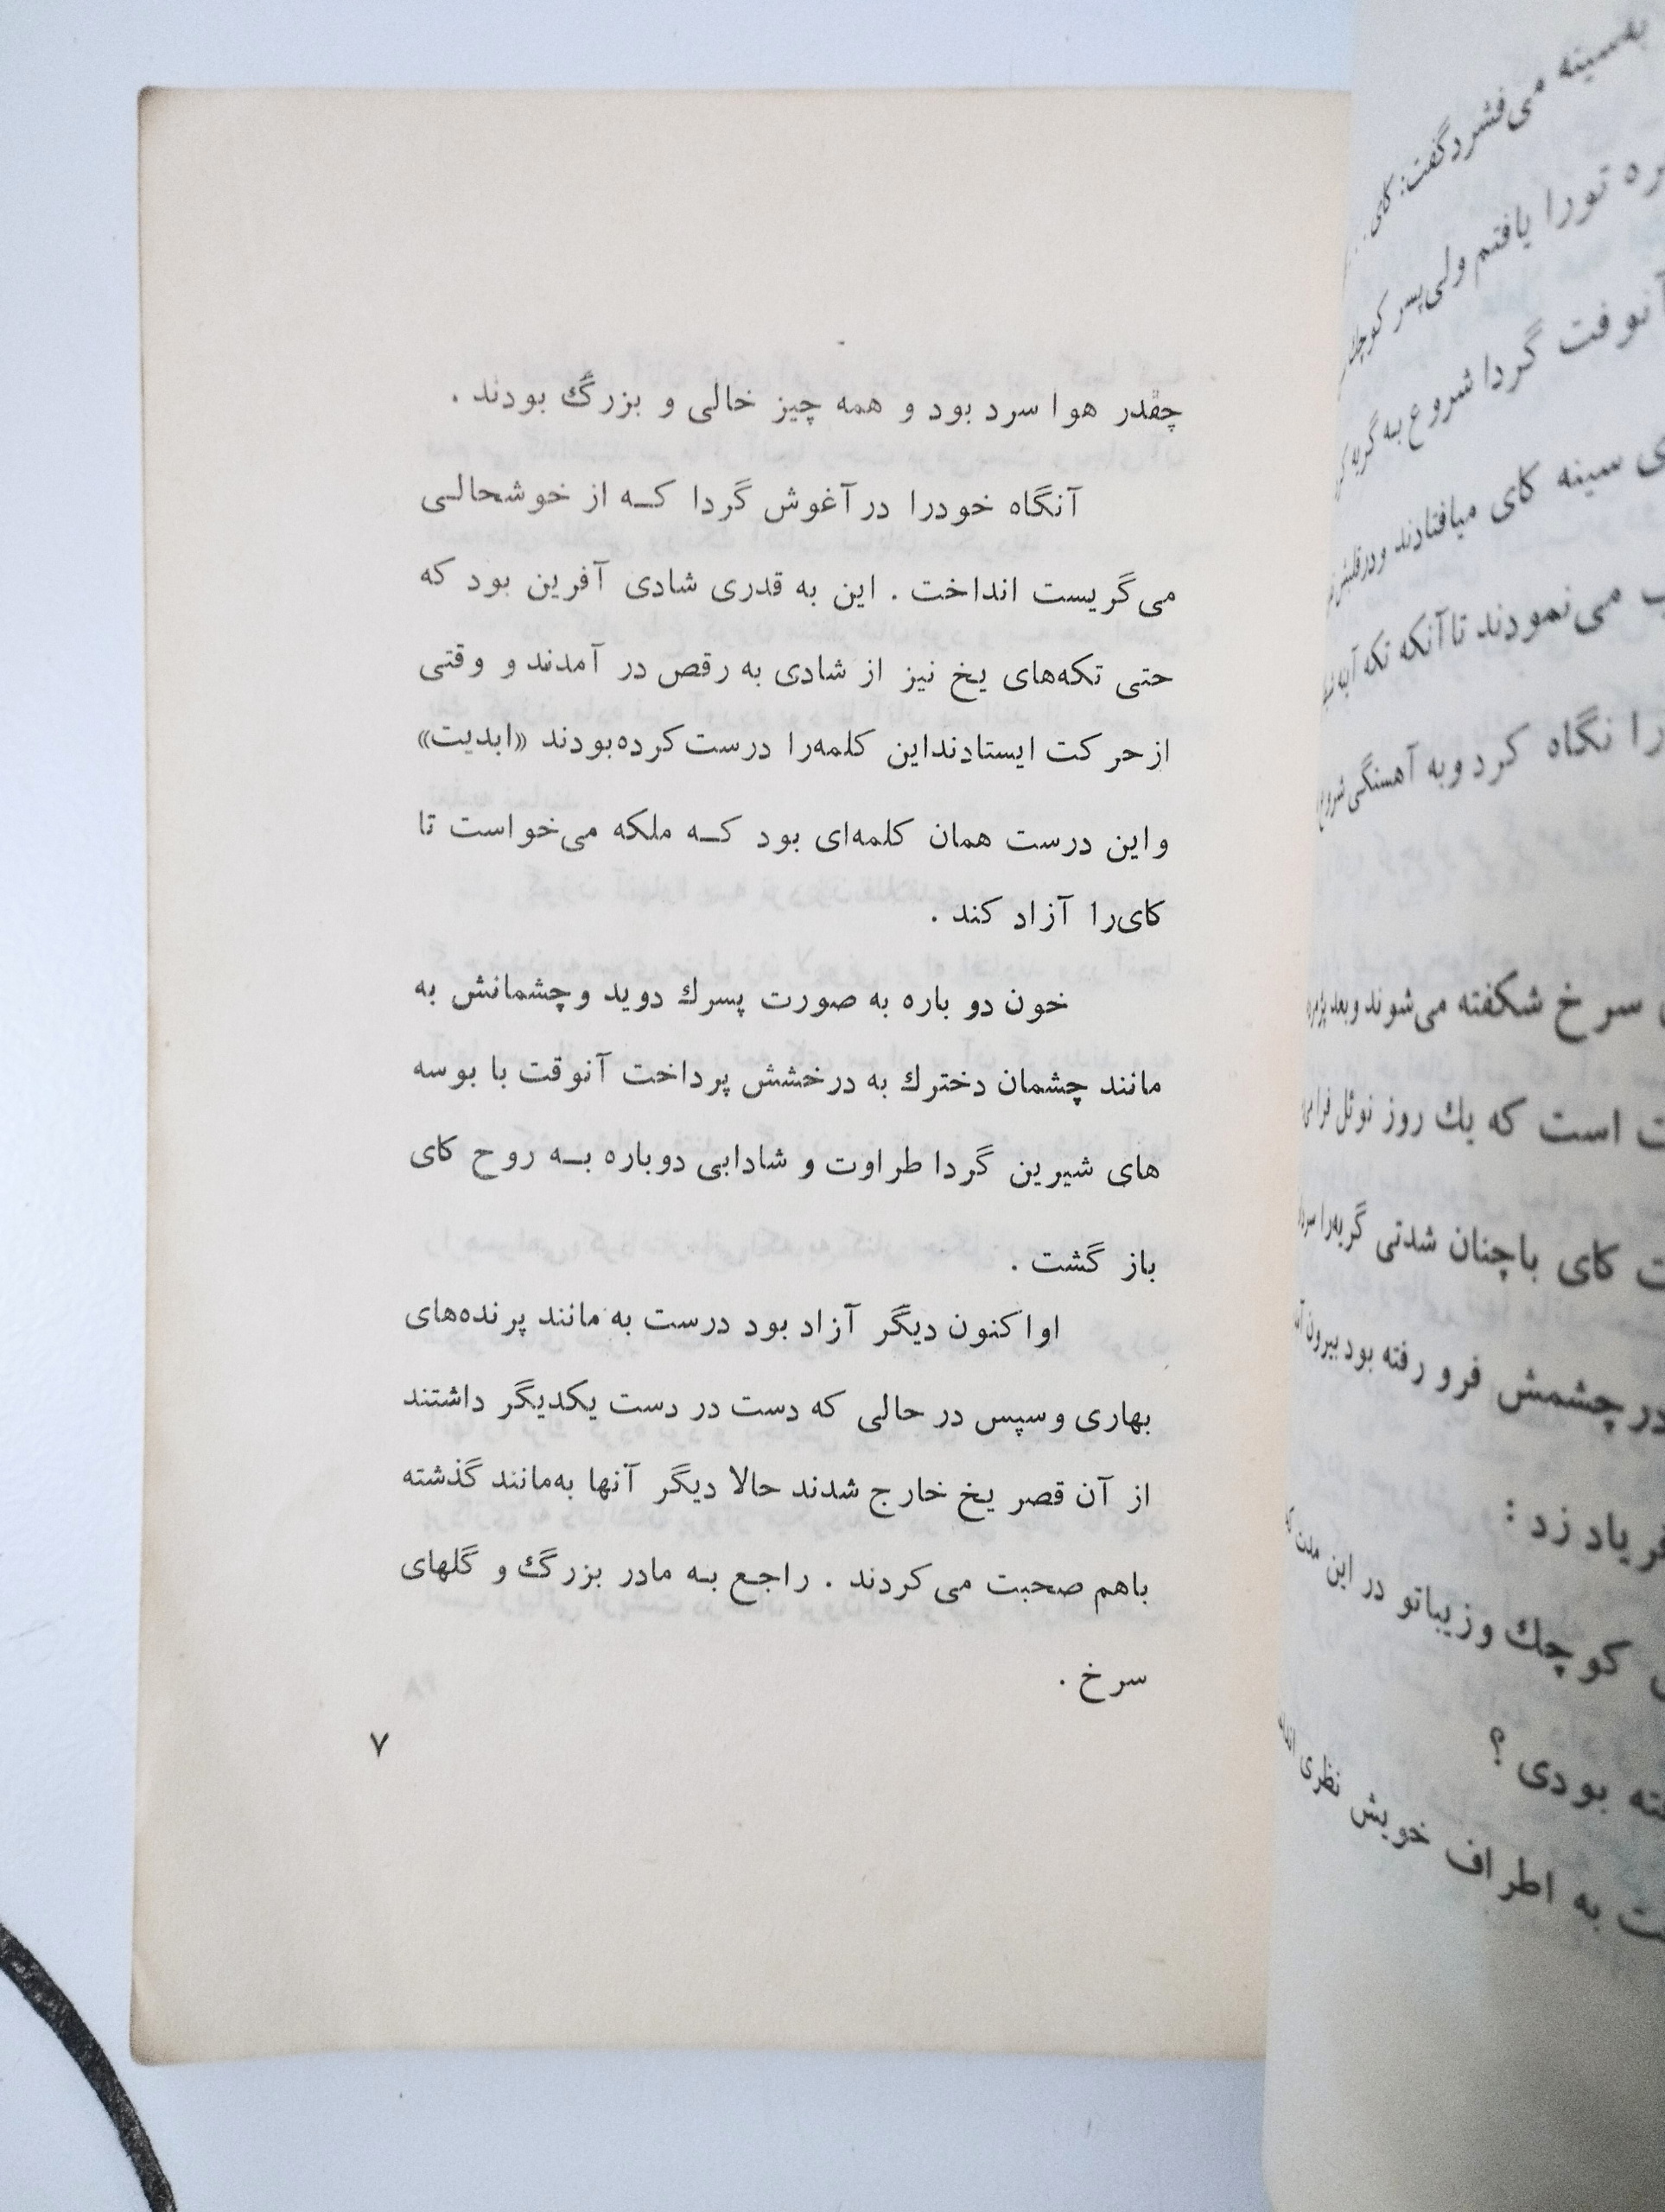 به‌سینه می‌فشرد گفت: کای . .
ره تورا یافتم ولی‌پسر
آنوقت گردا شروع به گریه
ی سینه کای میافتادند و درقلبش
ب می‌نمودند تا آنکه تکه
را نگاه کرد و به آهستگی شروع
سرخ شکفته می‌شوند و بعد
ت است که یك روز نوئل فرا
ت کای باچنان شدتی گریه‌را
درچشمش فرو رفته بود بیرون
فریاد زد :
کوچك و زیباتو در این مدت
ته بودی ؟
ت به اطراف خویش نظری
چقدر هوا سرد بود و همه چیز خالی و بزرگ بودند .
آنگاه خودرا در آغوش گردا که از خوشحالی
می‌گریست انداخت . این به قدری شادی آفرین بود که
حتی تکه‌های یخ نیز از شادی به رقص در آمدند و وقتی
ازحرکت ایستادنداین کلمه‌را درست کرده‌بودند «ابدیت»
واین درست همان کلمه‌ای بود که ملکه می‌خواست تا
کای‌را آزاد کند .
خون دو باره به صورت پسرك دوید وچشمانش به
مانند چشمان دخترك به درخشش پرداخت آنوقت با بوسه
های شیرین گردا طراوت و شادابی دوباره به روح کای
باز گشت .
اواکنون دیگر آزاد بود درست به مانند پرنده‌های
بهاری وسپس در حالی که دست در دست یکدیگر داشتند
از آن قصر یخ خارج شدند حالا دیگر آنها به‌مانند گذشته
باهم صحبت می‌کردند . راجع به مادر بزرگ و گلهای
سرخ .
۷